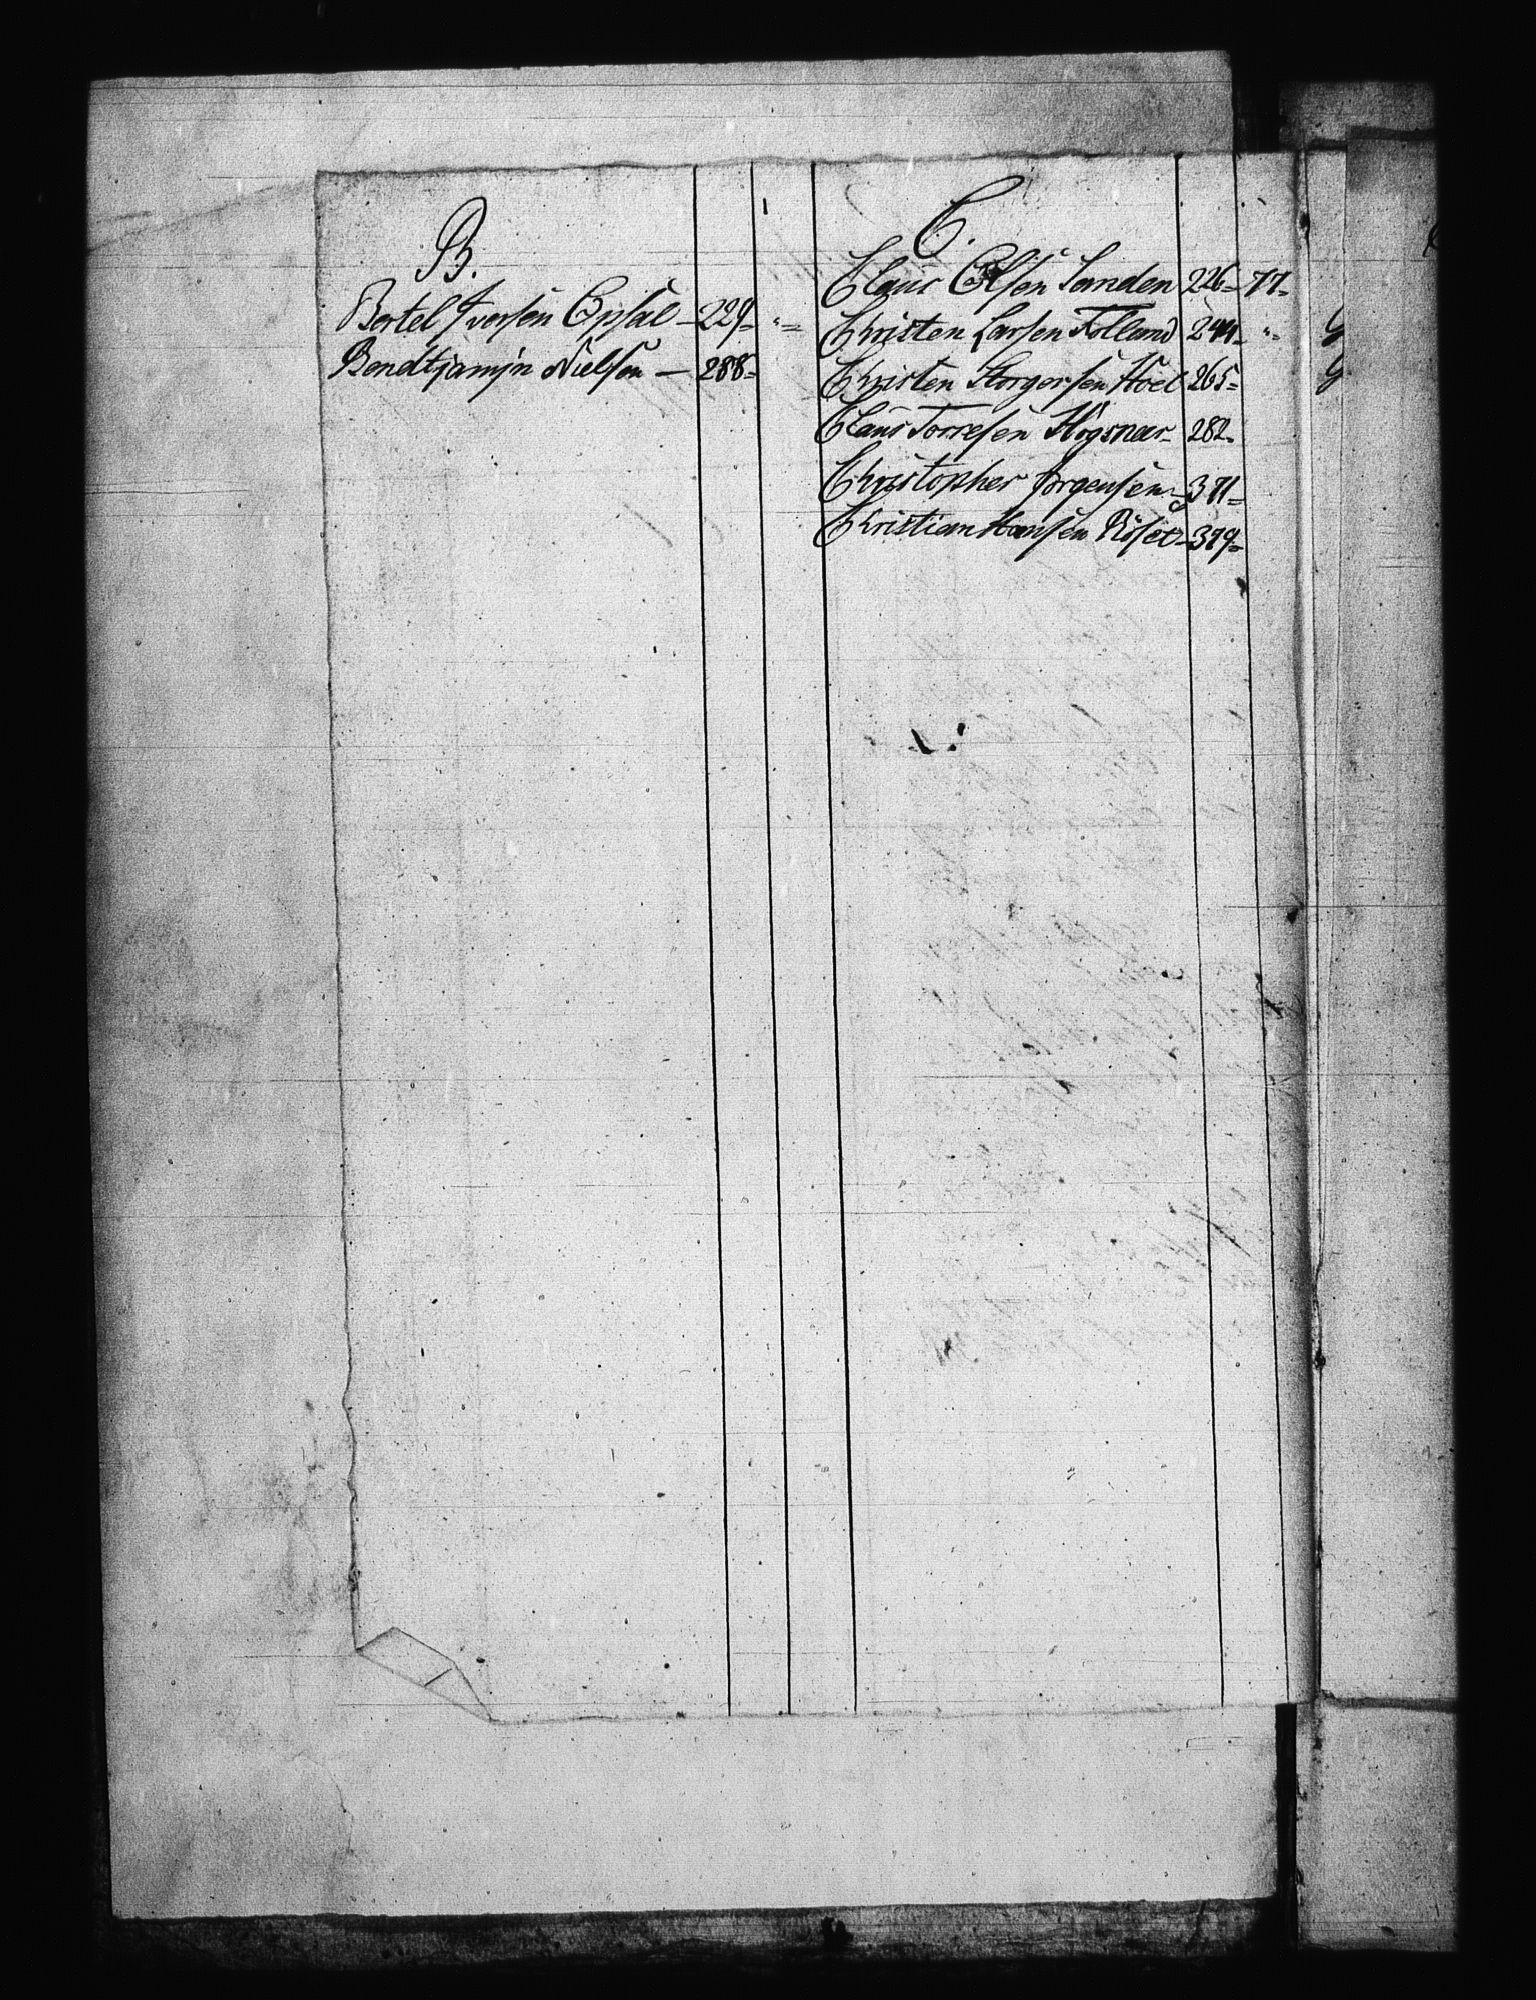 B.
Bertel Iversen Opsal – 229=
Bendtjamin Nielsen – 288=
C.
Claus Olsen Sanden 226= 77=
Christen Larsen Folland 244= "
Christen Storgersen Hoel 265=
Claus Torresen Högsnæs 282=
Christopher Jörgensen 371=
Christian Hansen Röset – 379=